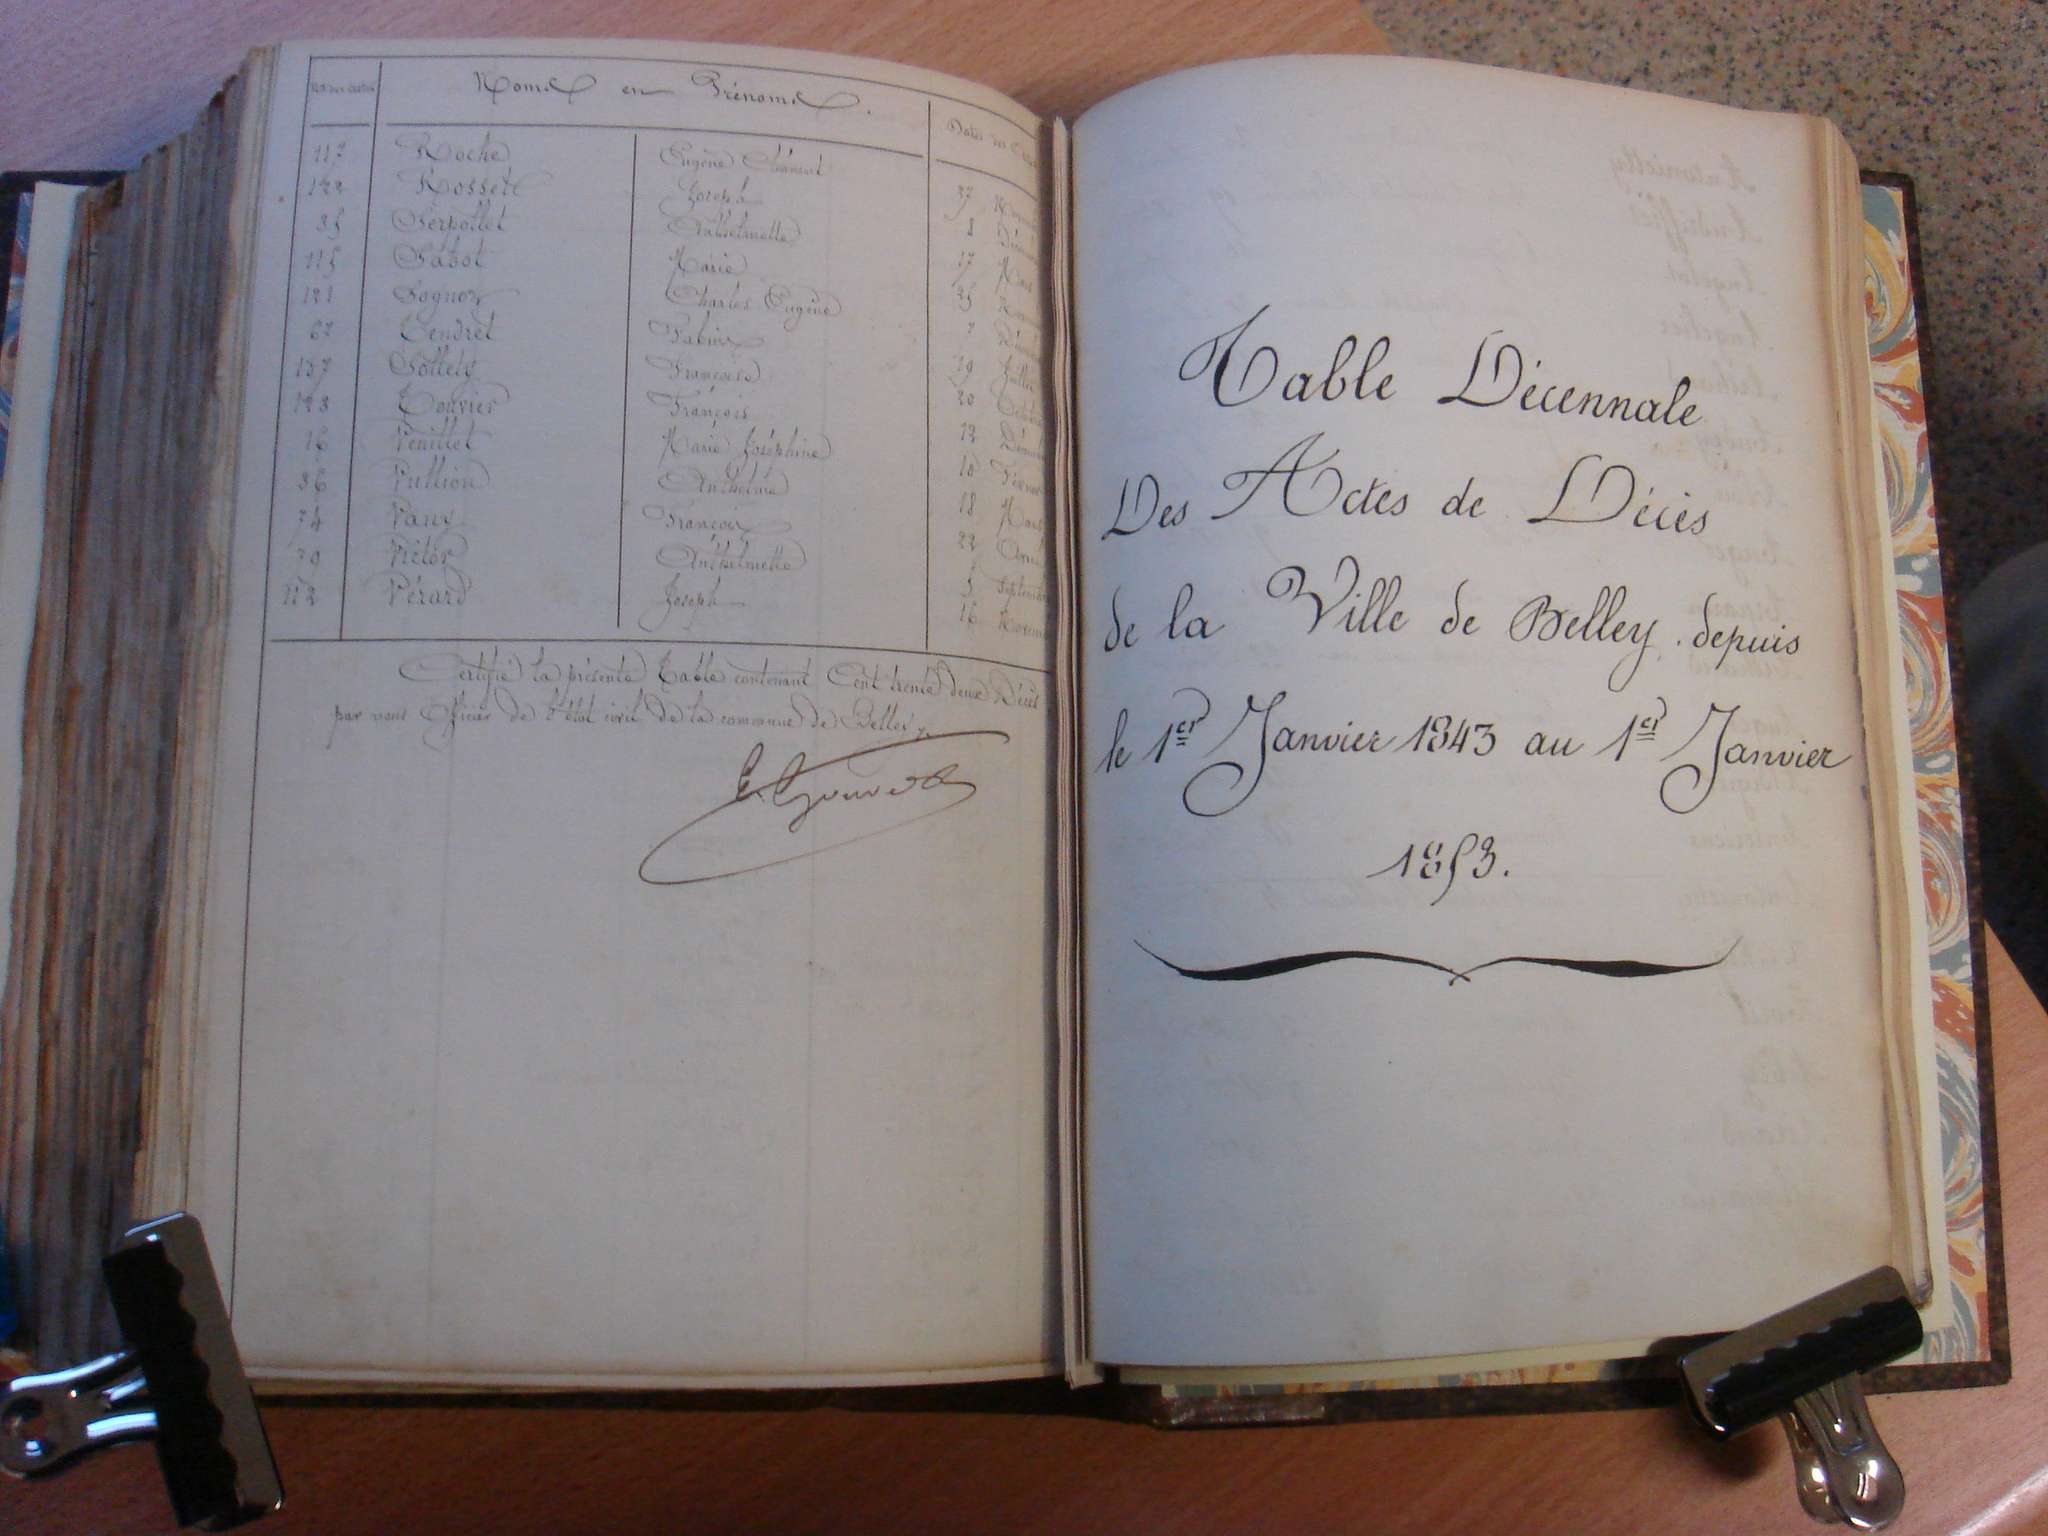 Noms en Prénoms.
Dates des
117 Roche Eugène Clément
122 Rossett Joseph 27
35 Serpollet Anthelmette 8
115 Sabot Marie 17 Mars
121 Sognoz Charles Eugène 25
67 Tendret Fabien 7
137 Sollety François 19 Juillet
123 Touvier François 20
16 Venillet Marie Joséphine 12
36 Vullion Anthelme 10
74 Vany François 18 Mars
39 Victor Anthelmette 22
112 Vérard Joseph 3 Septembre
16
Certifié la présente Table contenant Cent trente deux Décès
par nous Officier de l'état civil de la commune de Belley
Table Décennale
Des Actes de Décès
de la Ville de Belley, depuis
le 1er Janvier 1843 au 1er Janvier
1853.